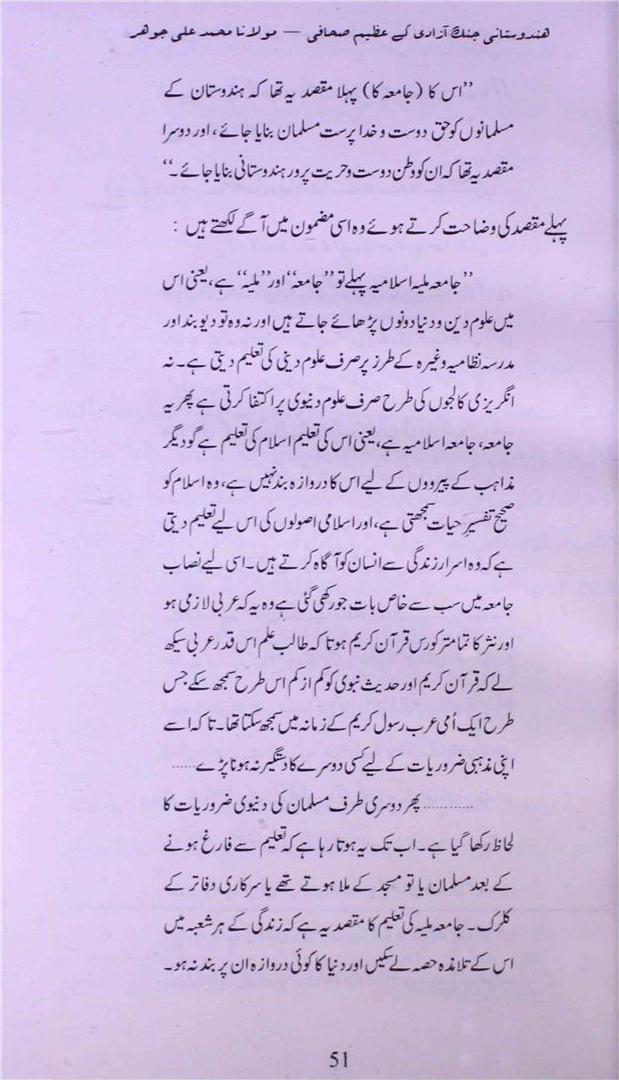 ہندوستانی جنگ آزادی کے عظیم صحافی — مولانا محمد علی جوہر
’’اس کا (جامعہ کا) پہلا مقصد یہ تھا کہ ہندوستان کے
مسلمانوں کو حق دوست و خدا پرست مسلمان بنایا جائے، اور دوسرا
مقصد یہ تھا کہ ان کو وطن دوست و حریت پرور ہندوستانی بنایا جائے۔‘‘
پہلے مقصد کی وضاحت کرتے ہوئے وہ اسی مضمون میں آگے لکھتے ہیں :
’’جامعہ ملیہ اسلامیہ پہلے تو ’’جامعہ‘‘ اور ’’ملیہ‘‘ ہے، یعنی اس
میں علوم دین و دنیا دونوں پڑھائے جاتے ہیں اور نہ وہ تو دیوبند اور
مدرسہ نظامیہ وغیرہ کے طرز پر صرف علوم دینی کی تعلیم دیتی ہے۔ نہ
انگریزی کالجوں کی طرح صرف علوم دنیوی پر اکتفا کرتی ہے پھر یہ
جامعہ، جامعہ اسلامیہ ہے، یعنی اس کی تعلیم اسلام کی تعلیم ہے گو دیگر
مذاہب کے پیرووں کے لیے اس کا دروازہ بند نہیں ہے، وہ اسلام کو
صحیح تفسیر حیات سمجھتی ہے، اور اسلامی اصولوں کی اس لیے تعلیم دیتی
ہے کہ وہ اسرار زندگی سے انسان کو آگاہ کرتے ہیں۔ اسی لیے نصاب
جامعہ میں سب سے خاص بات جو رکھی گئی ہے وہ یہ کہ عربی لازمی ہو
اور نثر کا تمامتر کورس قرآن کریم ہوتا کہ طالب علم اس قدر عربی سیکھ
لے کہ قرآن کریم اور حدیث نبوی کو کم از کم اس طرح سمجھ سکے جس
طرح ایک اُمی عرب رسول کریم کے زمانہ میں سمجھ سکتا تھا۔ تاکہ اسے
اپنی مذہبی ضروریات کے لیے کسی دوسرے کا دستگیر نہ ہونا پڑے ......
............ پھر دوسری طرف مسلمان کی دنیوی ضروریات کا
لحاظ رکھا گیا ہے۔ اب تک یہ ہوتا رہا ہے کہ تعلیم سے فارغ ہونے
کے بعد مسلمان یا تو مسجد کے ملا ہوتے تھے یا سرکاری دفاتر کے
کلرک۔ جامعہ ملیہ کی تعلیم کا مقصد یہ ہے کہ زندگی کے ہر شعبہ میں
اس کے تلامذہ حصہ لے سکیں اور دنیا کا کوئی دروازہ ان پر بند نہ ہو۔
51